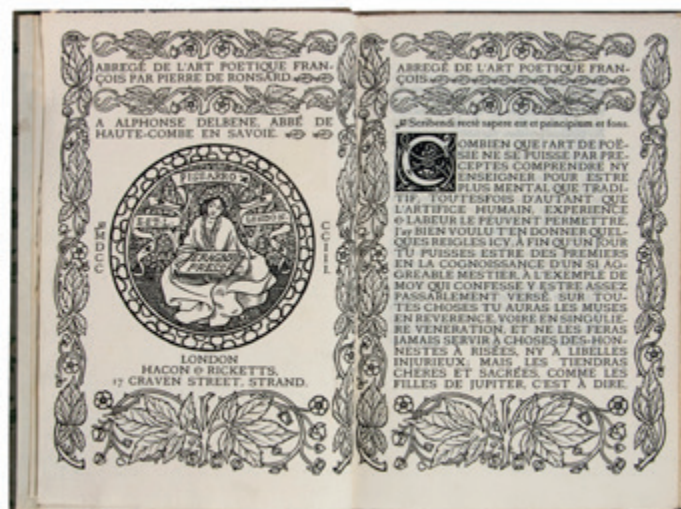 ABREGÉ DE L'ART POETIQUE FRAN-
ÇOIS PAR PIERRE DE RONSARD.
A ALPHONSE DELBENE, ABBÉ DE
HAUTE-COMBE EN SAVOIE.
PISSARRO
ERAGNY
PRESS
LONDON
HACON & RICKETTS,
17 CRAVEN STREET, STRAND.
ABREGÉ DE L'ART POETIQUE FRAN-
ÇOIS
Scribendi recté sapere est et principium et fons.
COMBIEN QUE l'ART DE POË-
SIE NE SE PUISSE PAR PRE-
CEPTES COMPRENDRE NY
ENSEIGNER, POUR ESTRE
PLUS MENTAL QUE TRADI-
TIF, TOUTESFOIS D'AUTANT QUE
L'ARTIFICE HUMAIN, EXPERIENCE
& LABEUR LE PEUVENT PERMETTRE,
J'ay BIEN VOULU T'EN DONNER QUEL-
QUES REIGLES ICY, À FIN QU'UN JOUR
TU PUISSES ESTRE DES PREMIERS
EN LA COGNOISSANCE D'UN SI AG-
GREABLE MESTIER, À L'EXEMPLE DE
MOY QUI CONFESSE Y ESTRE ASSEZ
PASSABLEMENT VERSÉ. SUR TOU-
TES CHOSES TU AURAS LES MUSES
EN REVERENCE, VOIRE EN SINGULIE-
RE VENERATION, ET NE LES FERAS
JAMAIS SERVIR À CHOSES DES-HON-
NESTES À RISÉES, NY À LIBELLES
INJURIEUX; MAIS LES TIENDRAS
CHERES ET SACRÉES, COMME LES
FILLES DE JUPITER, C'EST À DIRE,